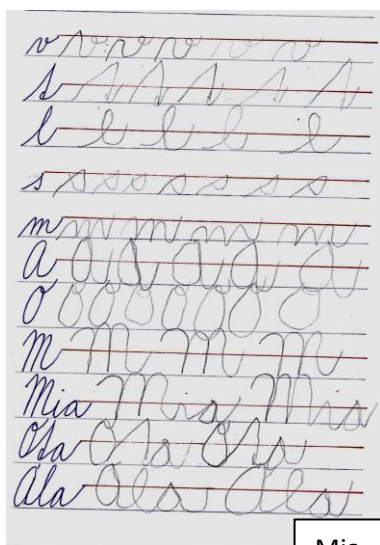 v v v v v v
t t t t t t
l l l l l
s s s s s s s s
m m m m m
A A A A A A
O O O O O O O O
M M M M
Mia Mia Mia
Ota Ota Ota
Ala Ala Ala